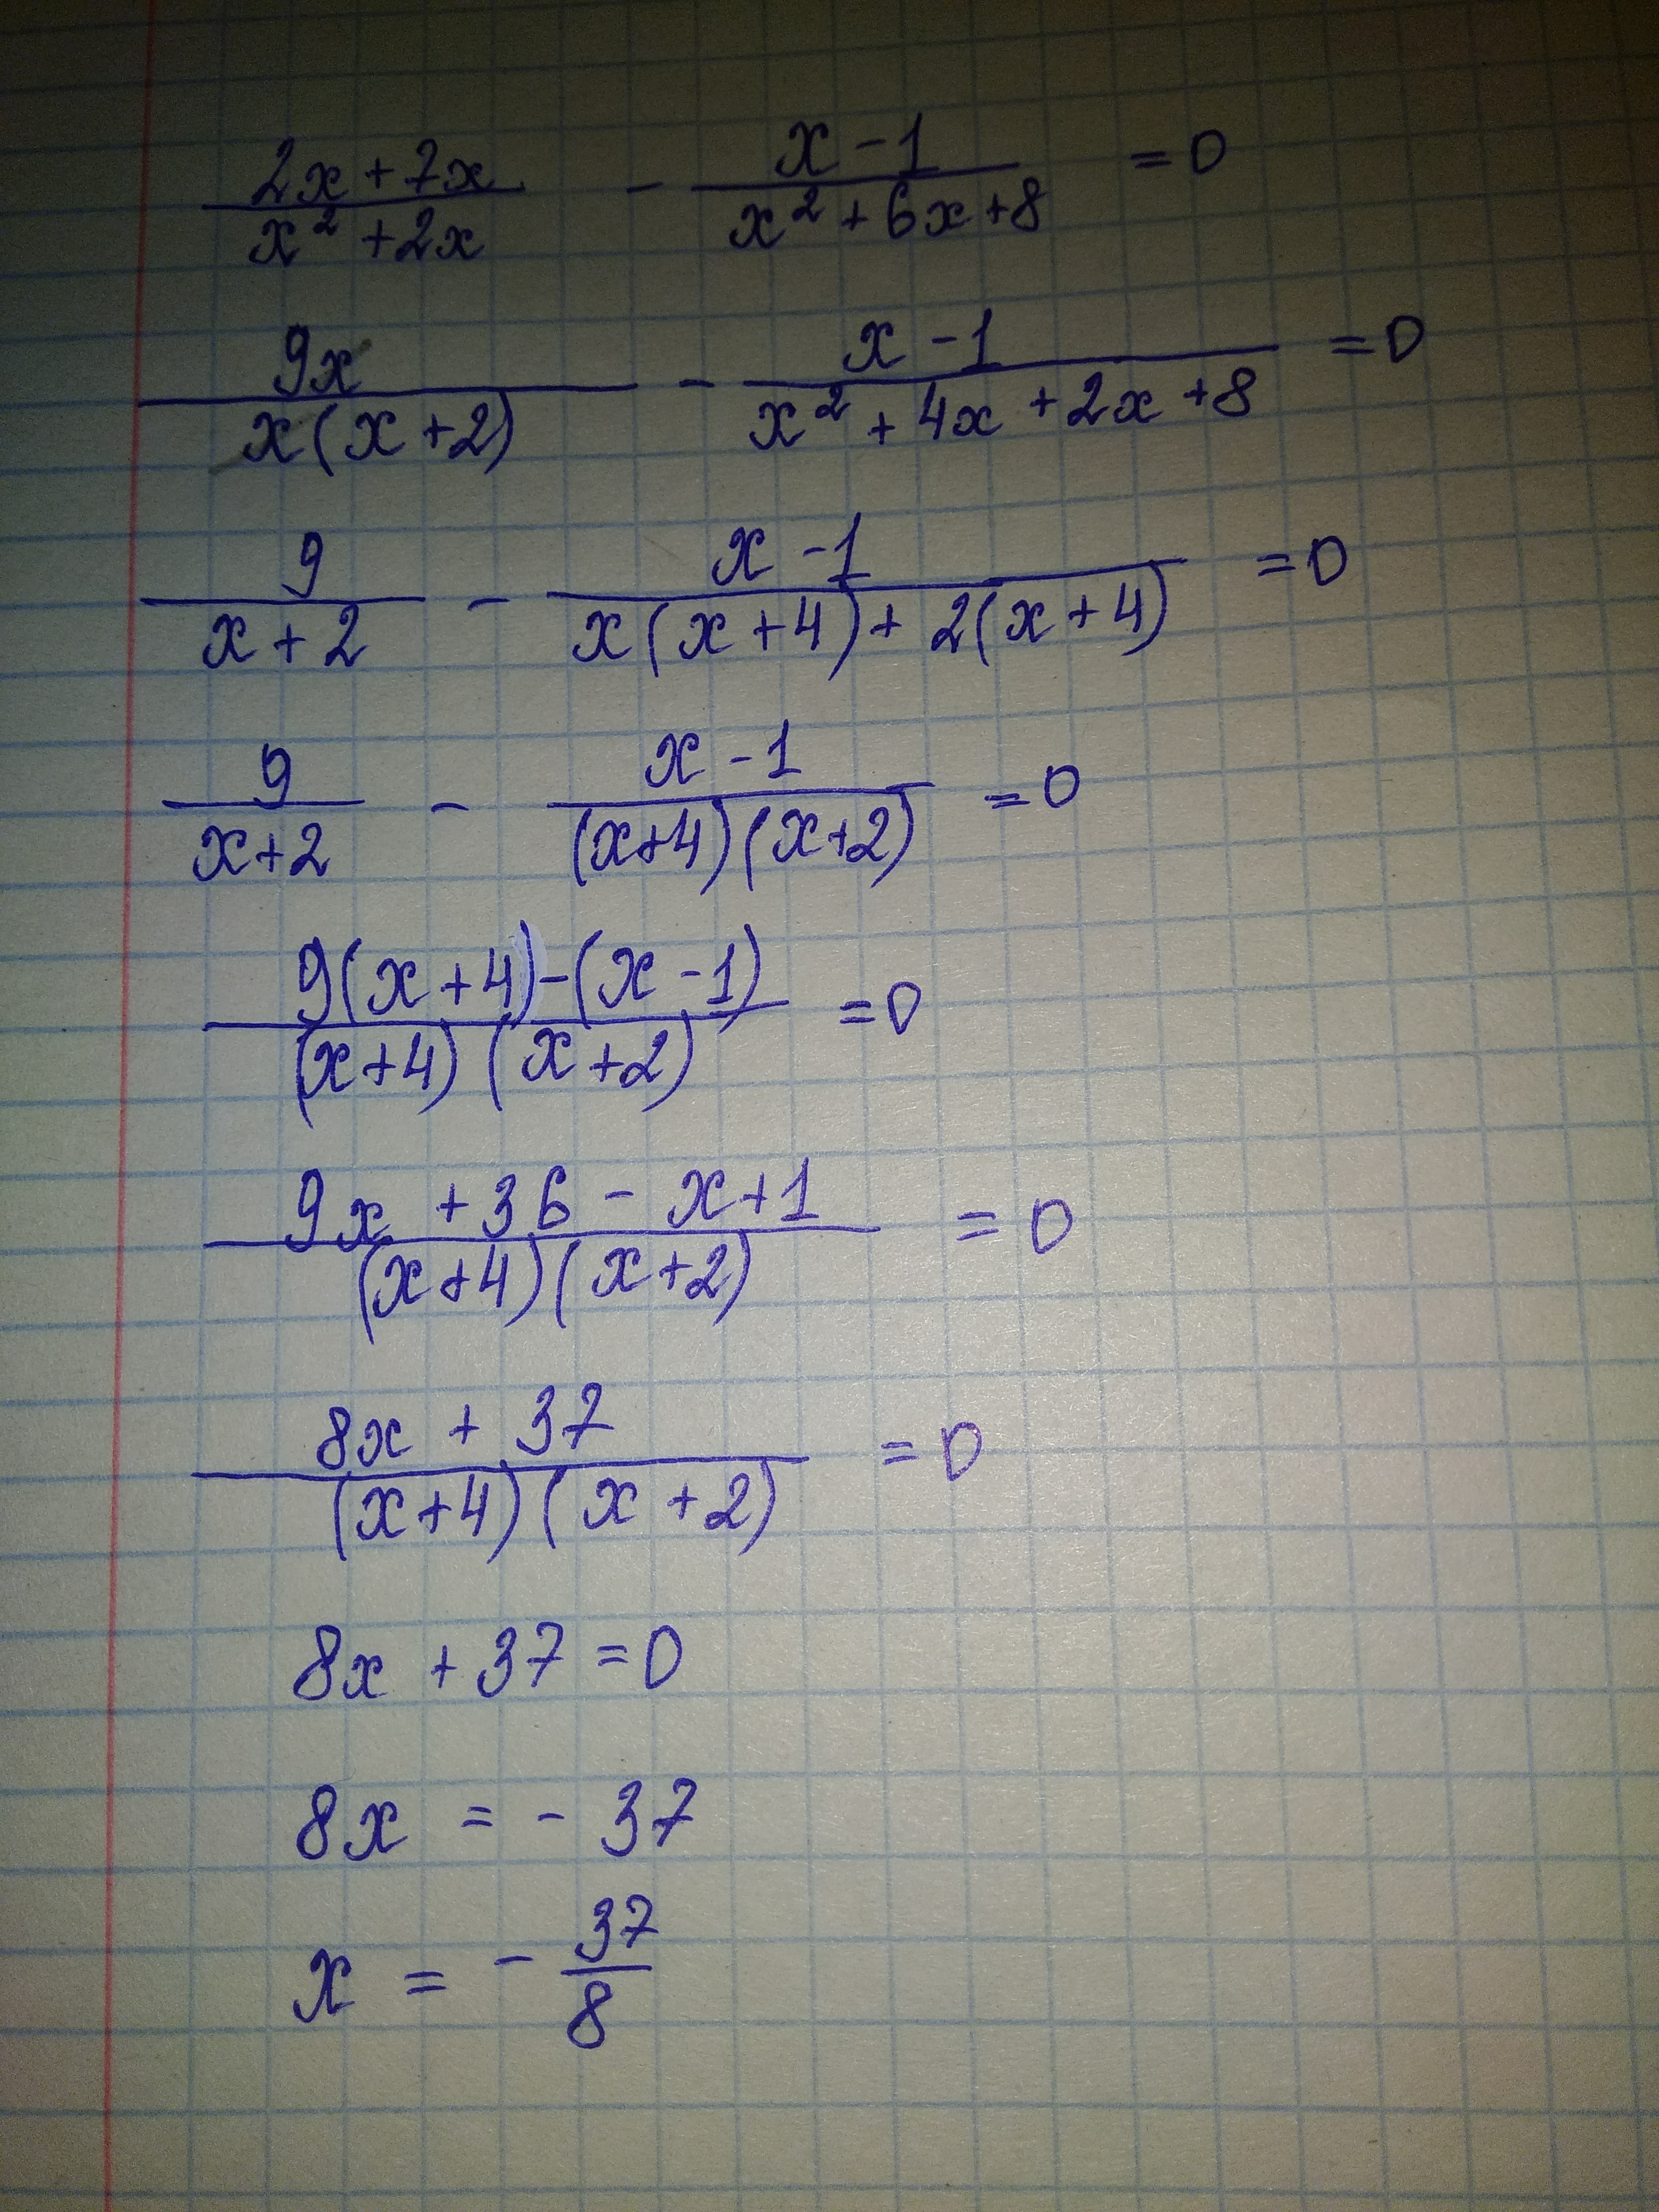 (2x + 7x)/(x² + 2x) - (x - 1)/(x² + 6x + 8) = 0
9x/(x(x + 2)) - (x - 1)/(x² + 4x + 2x + 8) = 0
9/(x + 2) - (x - 1)/(x(x + 4) + 2(x + 4)) = 0
9/(x + 2) - (x - 1)/((x + 4)(x + 2)) = 0
(9(x + 4) - (x - 1))/((x + 4)(x + 2)) = 0
(9x + 36 - x + 1)/((x + 4)(x + 2)) = 0
(8x + 37)/((x + 4)(x + 2)) = 0
8x + 37 = 0
8x = - 37
x = - 37/8